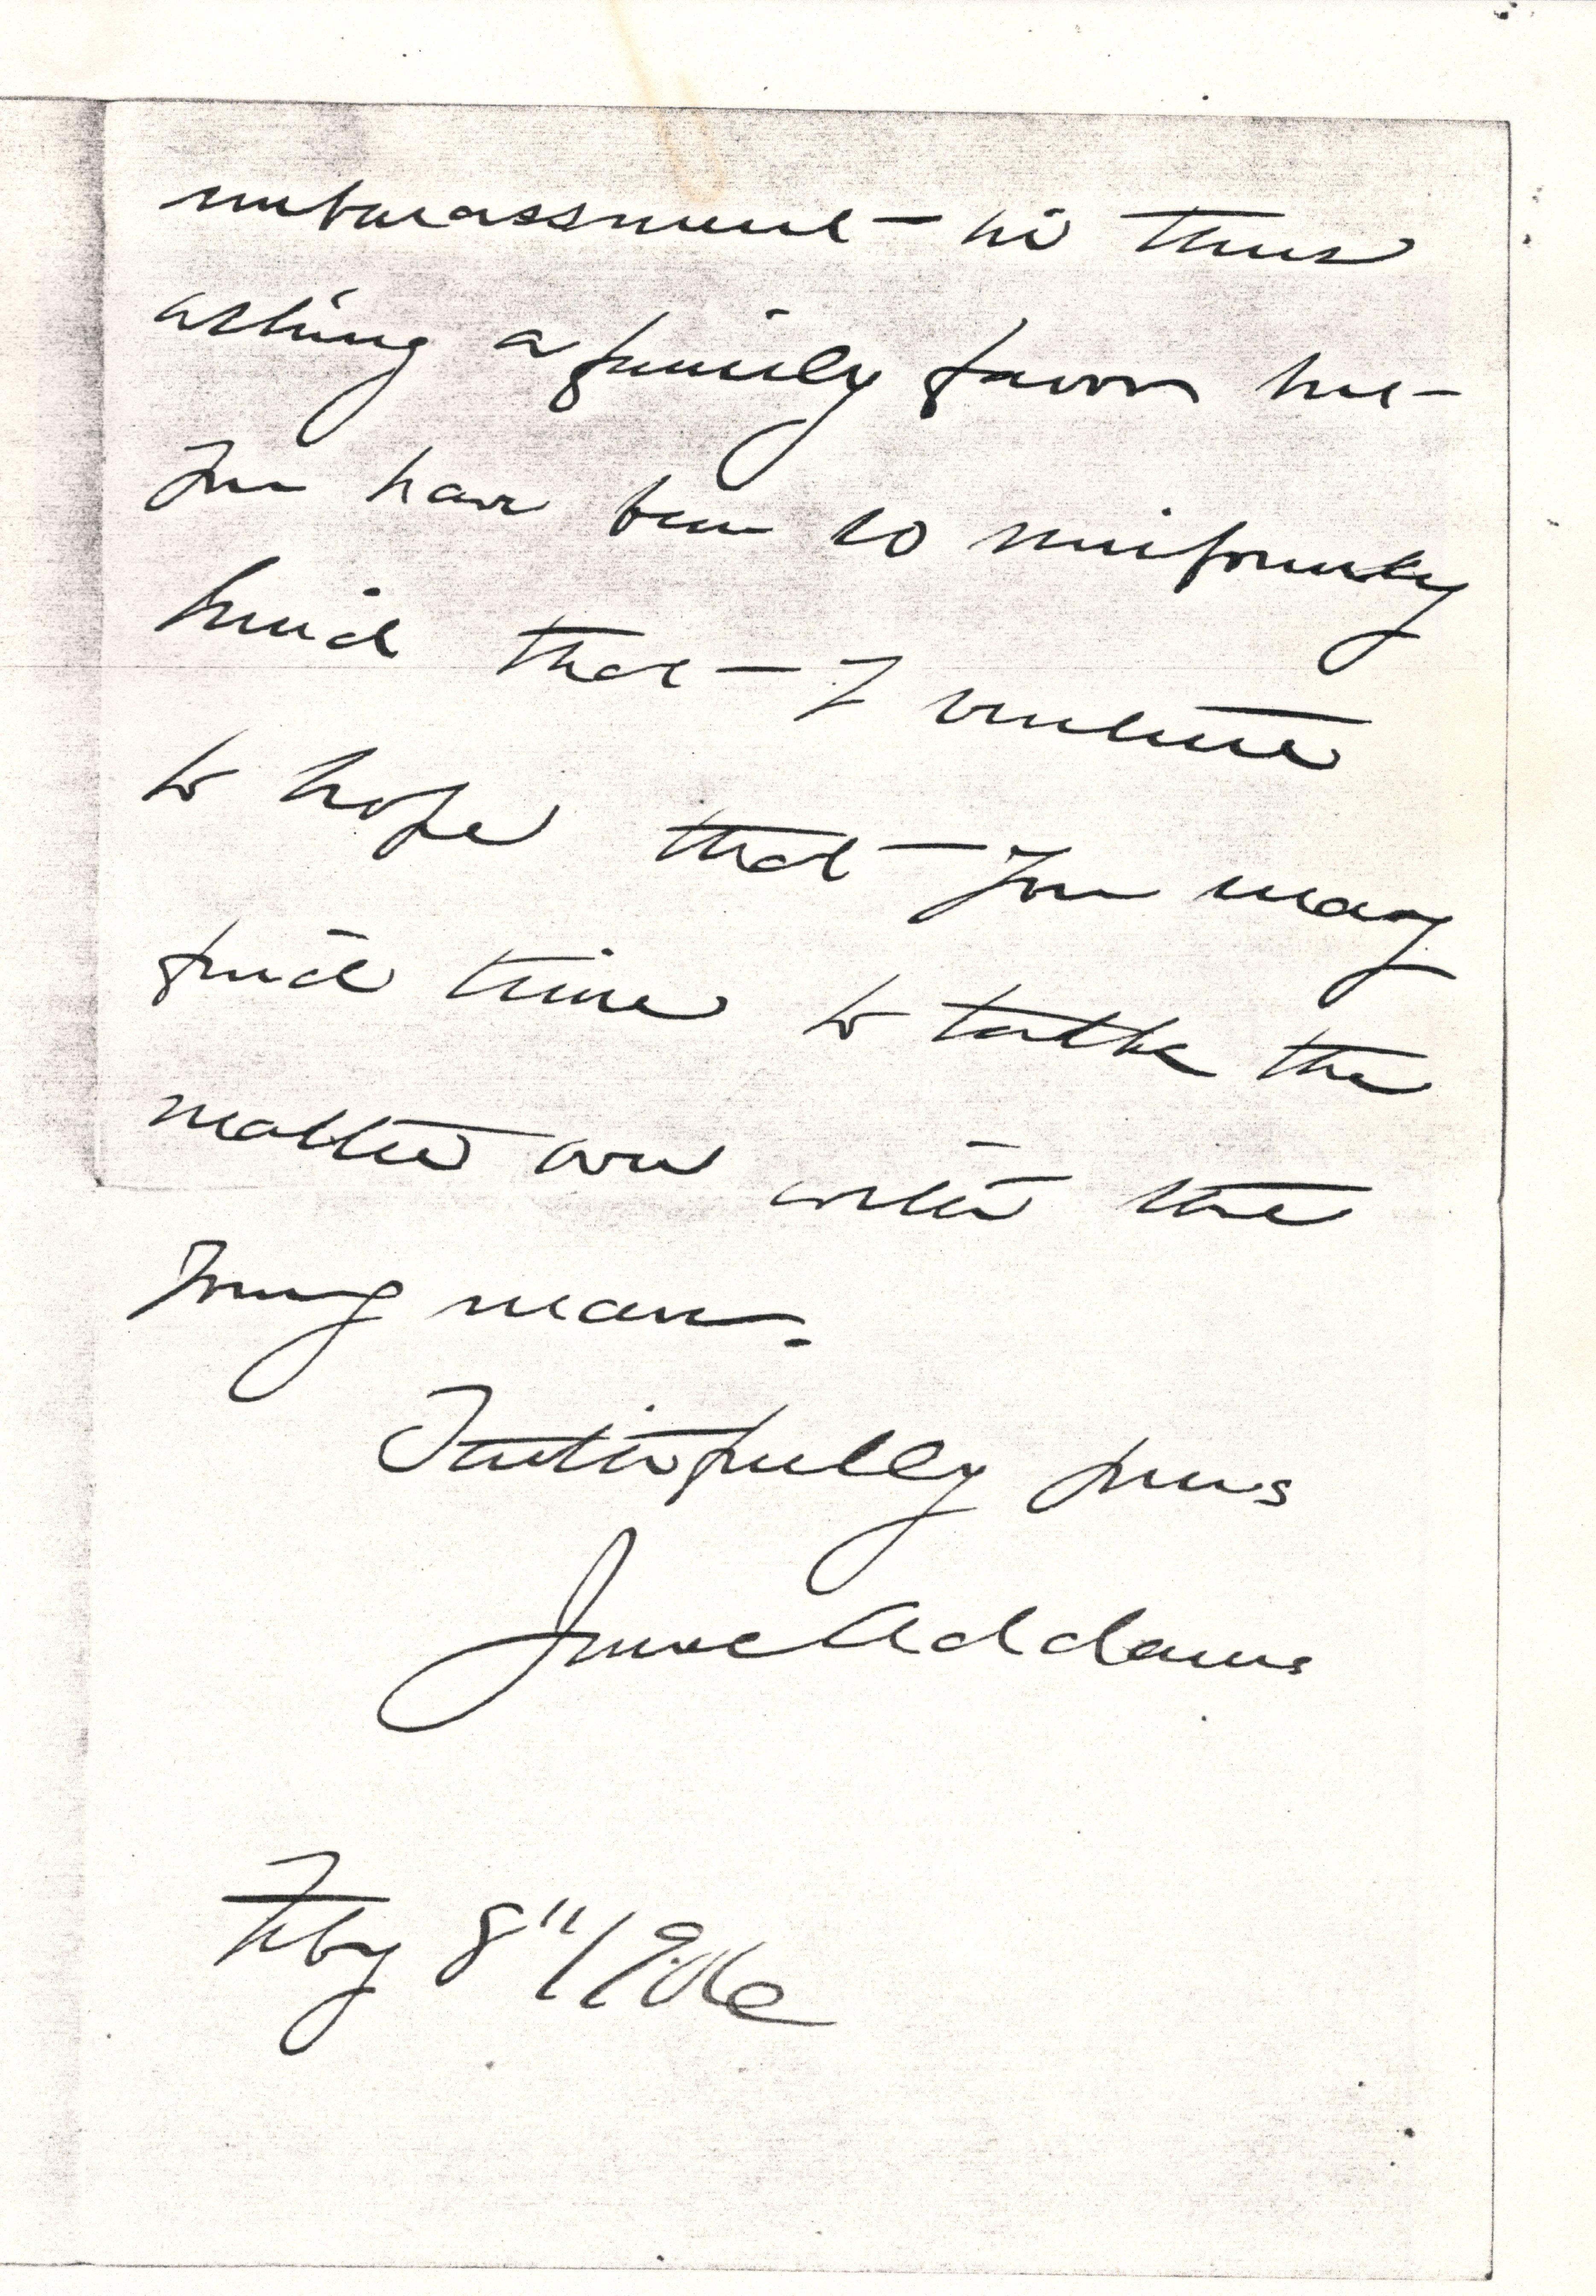 embarassment in thus
asking a family favor but
you have been so uniformly
kind that I venture
to hope that you may
find time to talk the
matter over with the
young man.
Faithfully yours
Jane Addams
Feby 8"